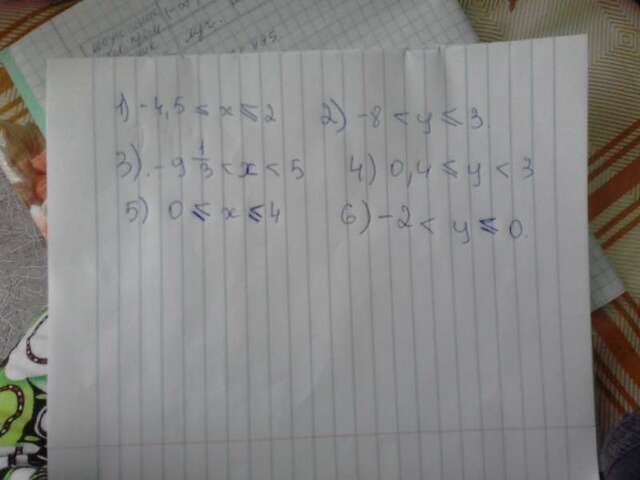 луч.
1) -4,5 ≤ x ≤ 2 2) -8 < y ≤ 3
3) -9 1/3 < x < 5 4) 0,4 ≤ y < 3
5) 0 ≤ x ≤ 4 6) -2 < y ≤ 0.